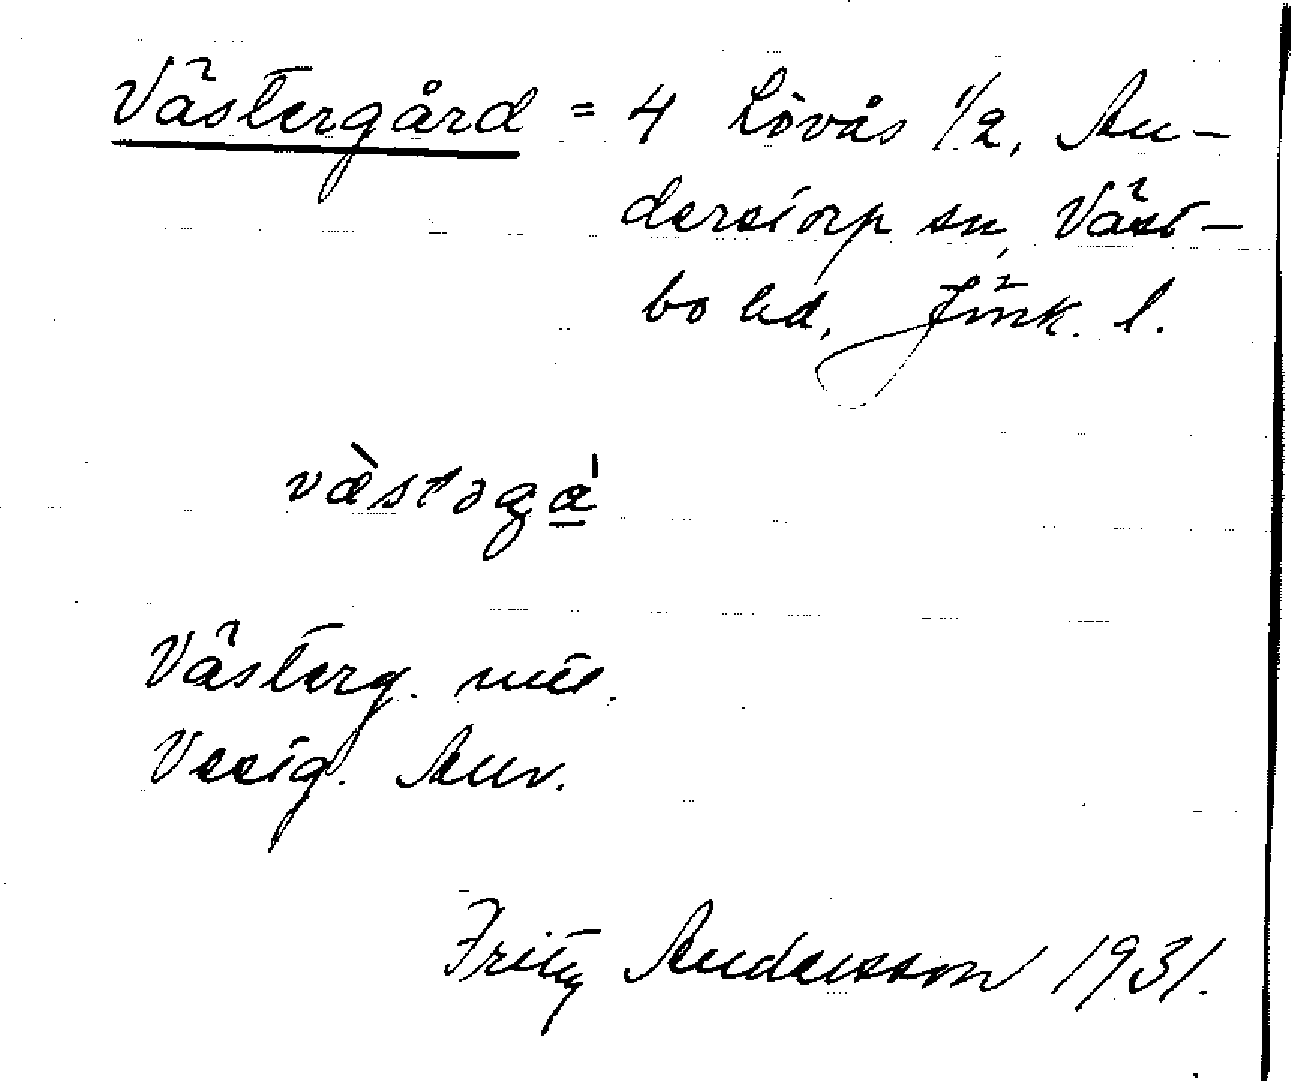 Västergård = 4 Lövås 1/2, An-
derstorp sn, Väst-
bo hd, Jönk. l.
västəgá
Västerg. utt.
Vestg. Anv.
Fritz Andersson 1931.